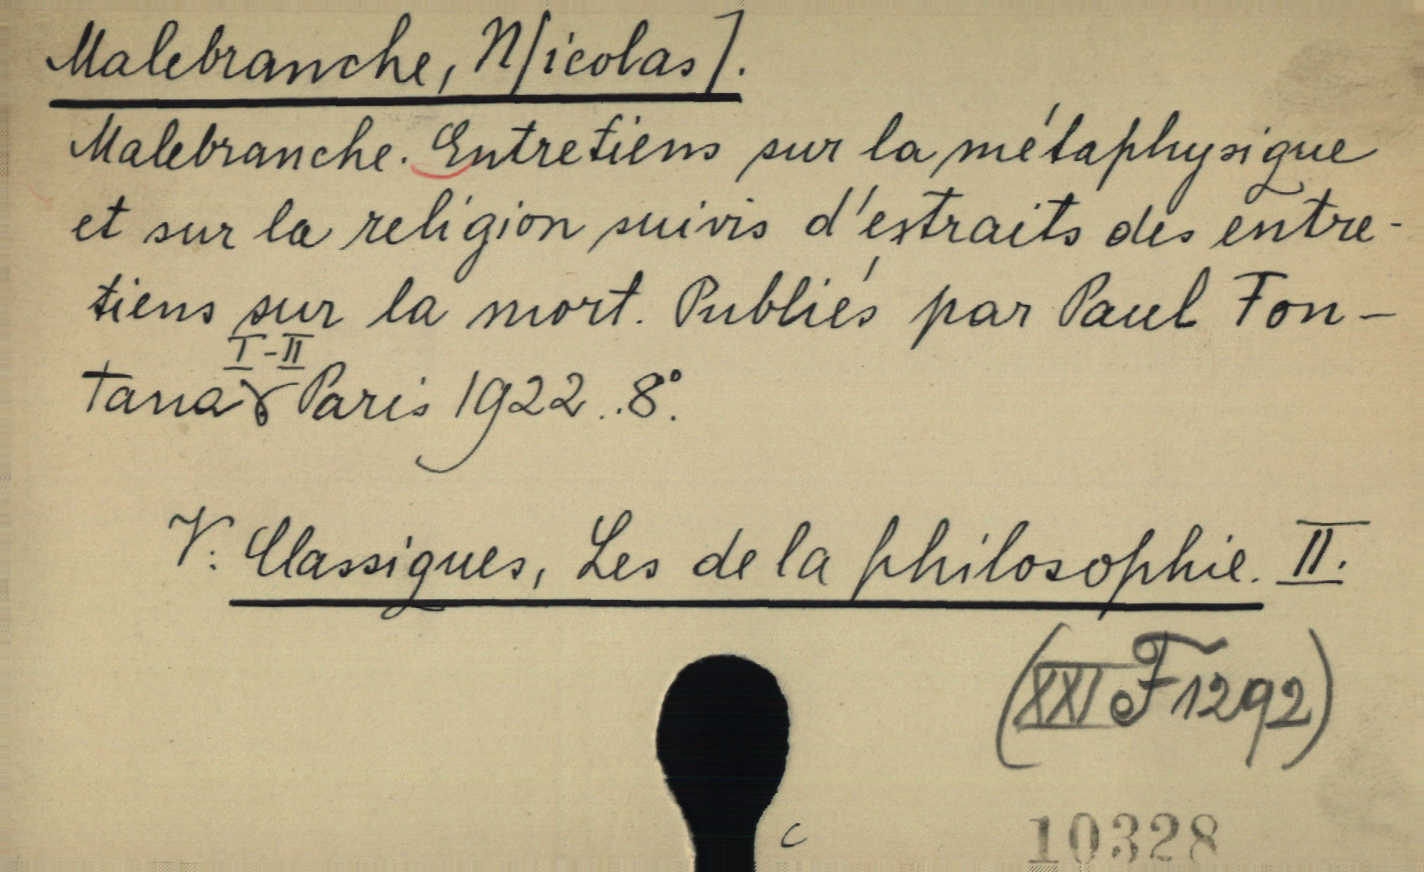 Malebranche, N[icolas].
Malebranche. Entretiens sur la métaphysique
et sur la religion suivis d'extraits des entre-
tiens sur la mort. Publiés par Paul Fon-
I-II
tana Paris 1922..8°.
V: Classiques, Les de la philosophie. II.
(XXI F 1292)
c
10328